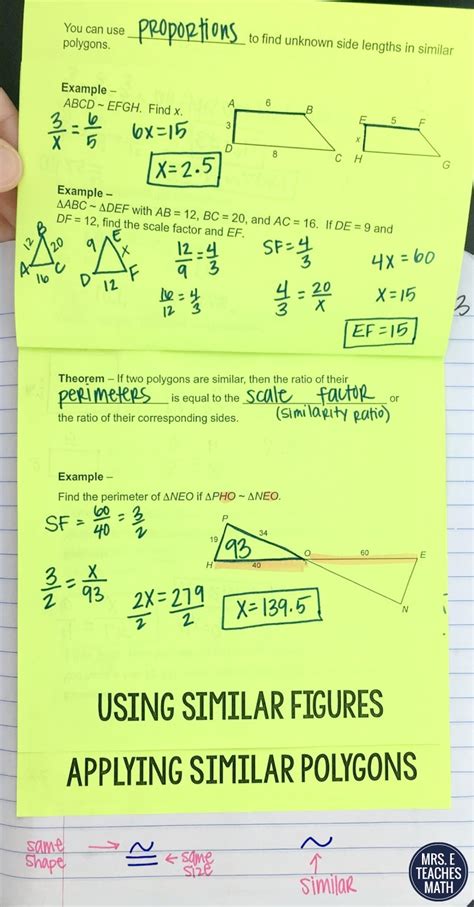 You can use proportions to find unknown side lengths in similar
polygons.
Example –
ABCD ~ EFGH. Find x.
3/x = 6/5 6x=15
x=2.5
A 6 B
3
D 8 C
E 5 F
x
H G
Example –
ΔABC ~ ΔDEF with AB = 12, BC = 20, and AC = 16. If DE = 9 and
DF = 12, find the scale factor and EF.
B
12 20
A 16 C
E
9 x
D 12 F
12/9 = 4/3 SF= 4/3 4x=60
16/12 = 4/3 4/3 = 20/x x=15
EF=15
3
Theorem – If two polygons are similar, then the ratio of their
perimeters is equal to the scale factor or
(similarity ratio)
the ratio of their corresponding sides.
Example –
Find the perimeter of ΔNEO if ΔPHO ~ ΔNEO.
SF = 60/40 = 3/2
3/2 = x/93 2x/2 = 279/2 x=139.5
P
19 34
93
H 40 O 60 E
N
USING SIMILAR FIGURES
APPLYING SIMILAR POLYGONS
same shape → ≅ ← same size
~ ↑ similar
MRS. E
TEACHES
MATH